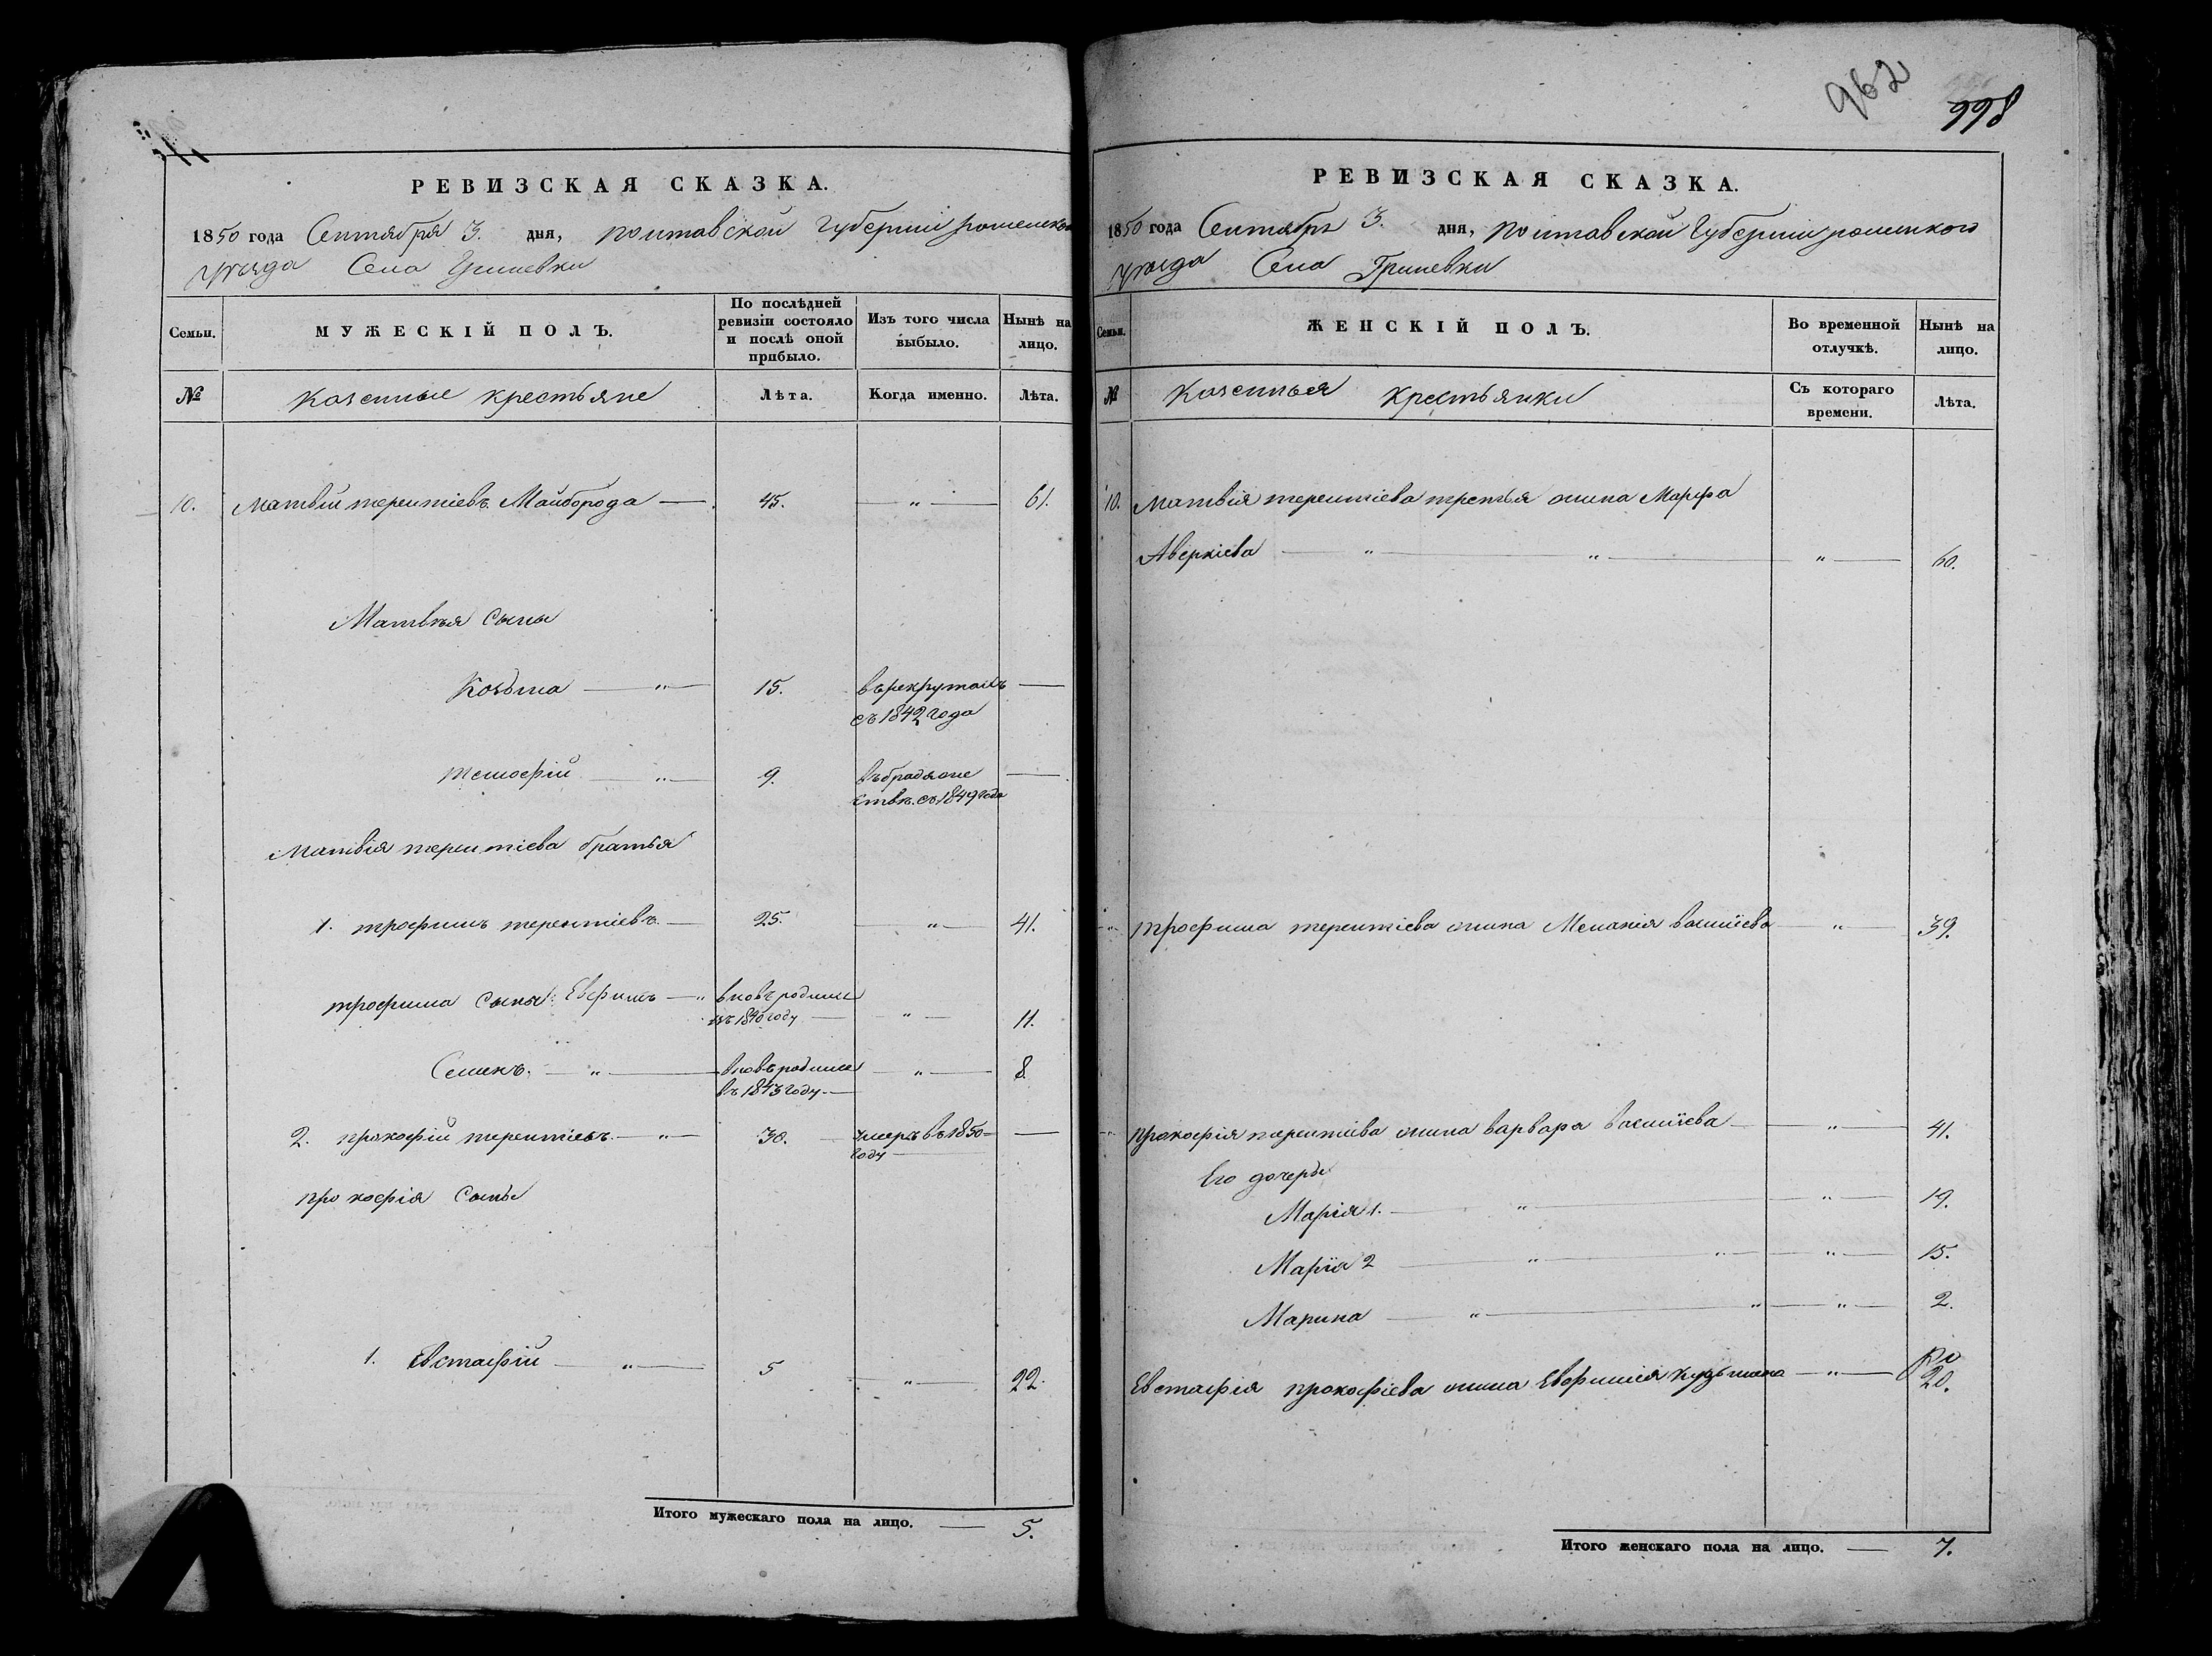 РЕВИЗСКАЯ СКАЗКА.
1850 года Сентября 3. дня, полтавской губерніи роменского
уѣзда Села Гриневки
Семьи. МУЖЕСКІЙ ПОЛЪ. По послѣдней ревизіи состояло и послѣ оной прибыло. Изъ того числа выбыло. Нынѣ на лицо.
№ Козенные крестьяне Лѣта. Когда именно. Лѣта.
10. Матвій терентіевъ Майборода — 45. — " — 61.
Матвѣя Сыны
Козьма — " — 15. въ рекрутахъ —
съ 1842 года
тимофій — " — 9. въ бродяже —
ствѣ. съ 1849 года
Матвія терентіева братья
1. трофимъ терентіевъ — 25. — " — 41.
трофима Сыны: Евфимъ — " вновь родился
въ 1840 году — " — 11.
Семенъ. — " — вновь родился — " — 8.
въ 1843 году. —
2. прокофій терентіевъ. — " — 30. умеръ въ 1850 —
году —
прокофія Сыны
1. Евстафій — " — 5 — " — 22.
Итого мужескаго пола на лицо. — 5.
962
998
РЕВИЗСКАЯ СКАЗКА.
1850 года Сентября 3. дня, полтавской Губерніи роменского
уѣзда Села Гриневки
Семьи. ЖЕНСКІЙ ПОЛЪ. Во временной отлучкѣ. Нынѣ на лицо.
№ Козенныя Крестьянки Съ котораго времени. Лѣта.
10. Матвія терентіева третья жина Марфа
Аверкіева — " — " — " — 60.
" трофима терентіева жина Меланія василіева — " — 39.
прокофія терентіева жина варвара василіева — " — 41.
Его дочеры
Марія 1. — " — " — 19.
Марія 2 — " — " — " — 15.
Марина — " — " — " — 2.
Евстафія прокофіева жина Евфимія кузьмина — " — 20.
Итого женскаго пола на лицо. — 7.